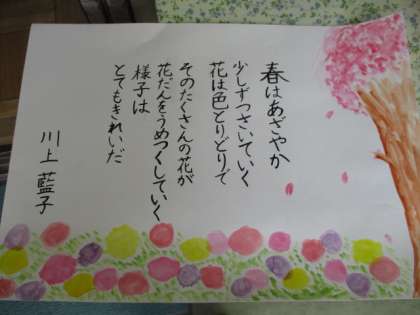 春はあざやか
少しずつさいていく
花は色とりどりで
そのたくさんの花が
花だんをうめつくしていく
様子は
とてもきれいだ
川上 藍子